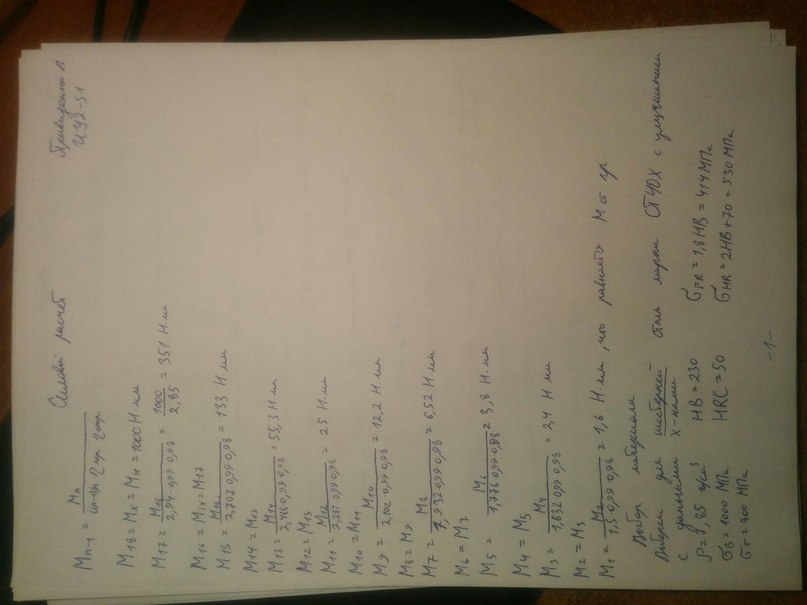 Силовой расчет
ИУ2-51
Mn-1 = Mn / in-n-1 ηцр ηпер
M18 = Mx = Mн = 1000 Н мм
M17 = M18 / 2,94·0,99 0,98 = 1000 / 2,85 = 351 Н мм
M16 = M1x = M17
M15 = M16 / 2,707 0,99 0,98 = 133 Н мм
M14 = M15
M13 = M14 / 2,488·0,99 0,98 = 55,3 Н мм
M12 = M13
M11 = M12 / 2,287 0,99 0,98 = 25 Н мм
M10 = M11
M9 = M10 / 2,102 0,99 0,98 = 12,2 Н мм
M8 = M9
M7 = M8 / 1,932 0,99 0,98 = 6,52 Н мм
M6 = M7
M5 = M6 / 1,776 0,99 0,98 = 3,8 Н мм
M4 = M5
M3 = M4 / 1,632 0,99 0,98 = 2,4 Н мм
M2 = M3
M1 = M2 / 1,5 0,99 0,98 = 1,6 Н мм, что равняется M от гр
Выбор материала
Выберем для шестерней сталь марки СТ40Х с улучшением
с данными х-ками
ρ = 7,85 г/см³ HB = 230 σFR = 1,8 HB = 414 МПа
σв = 1000 МПа HRC = 50 σHR = 2HB + 70 = 530 МПа
σт = 800 МПа
-1-